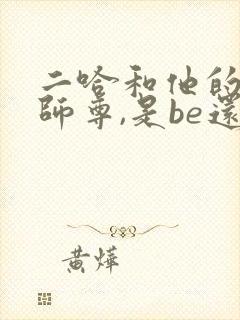 二哈和他的
師尊,是be還
黄燁